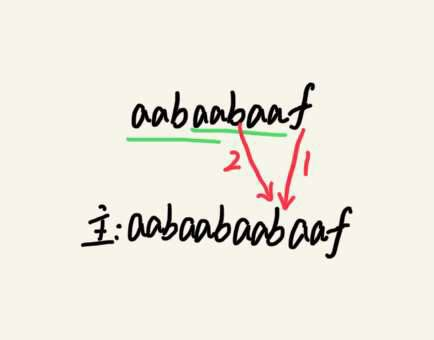 aabaabaaf
2 1
主:aabaabaabaaf